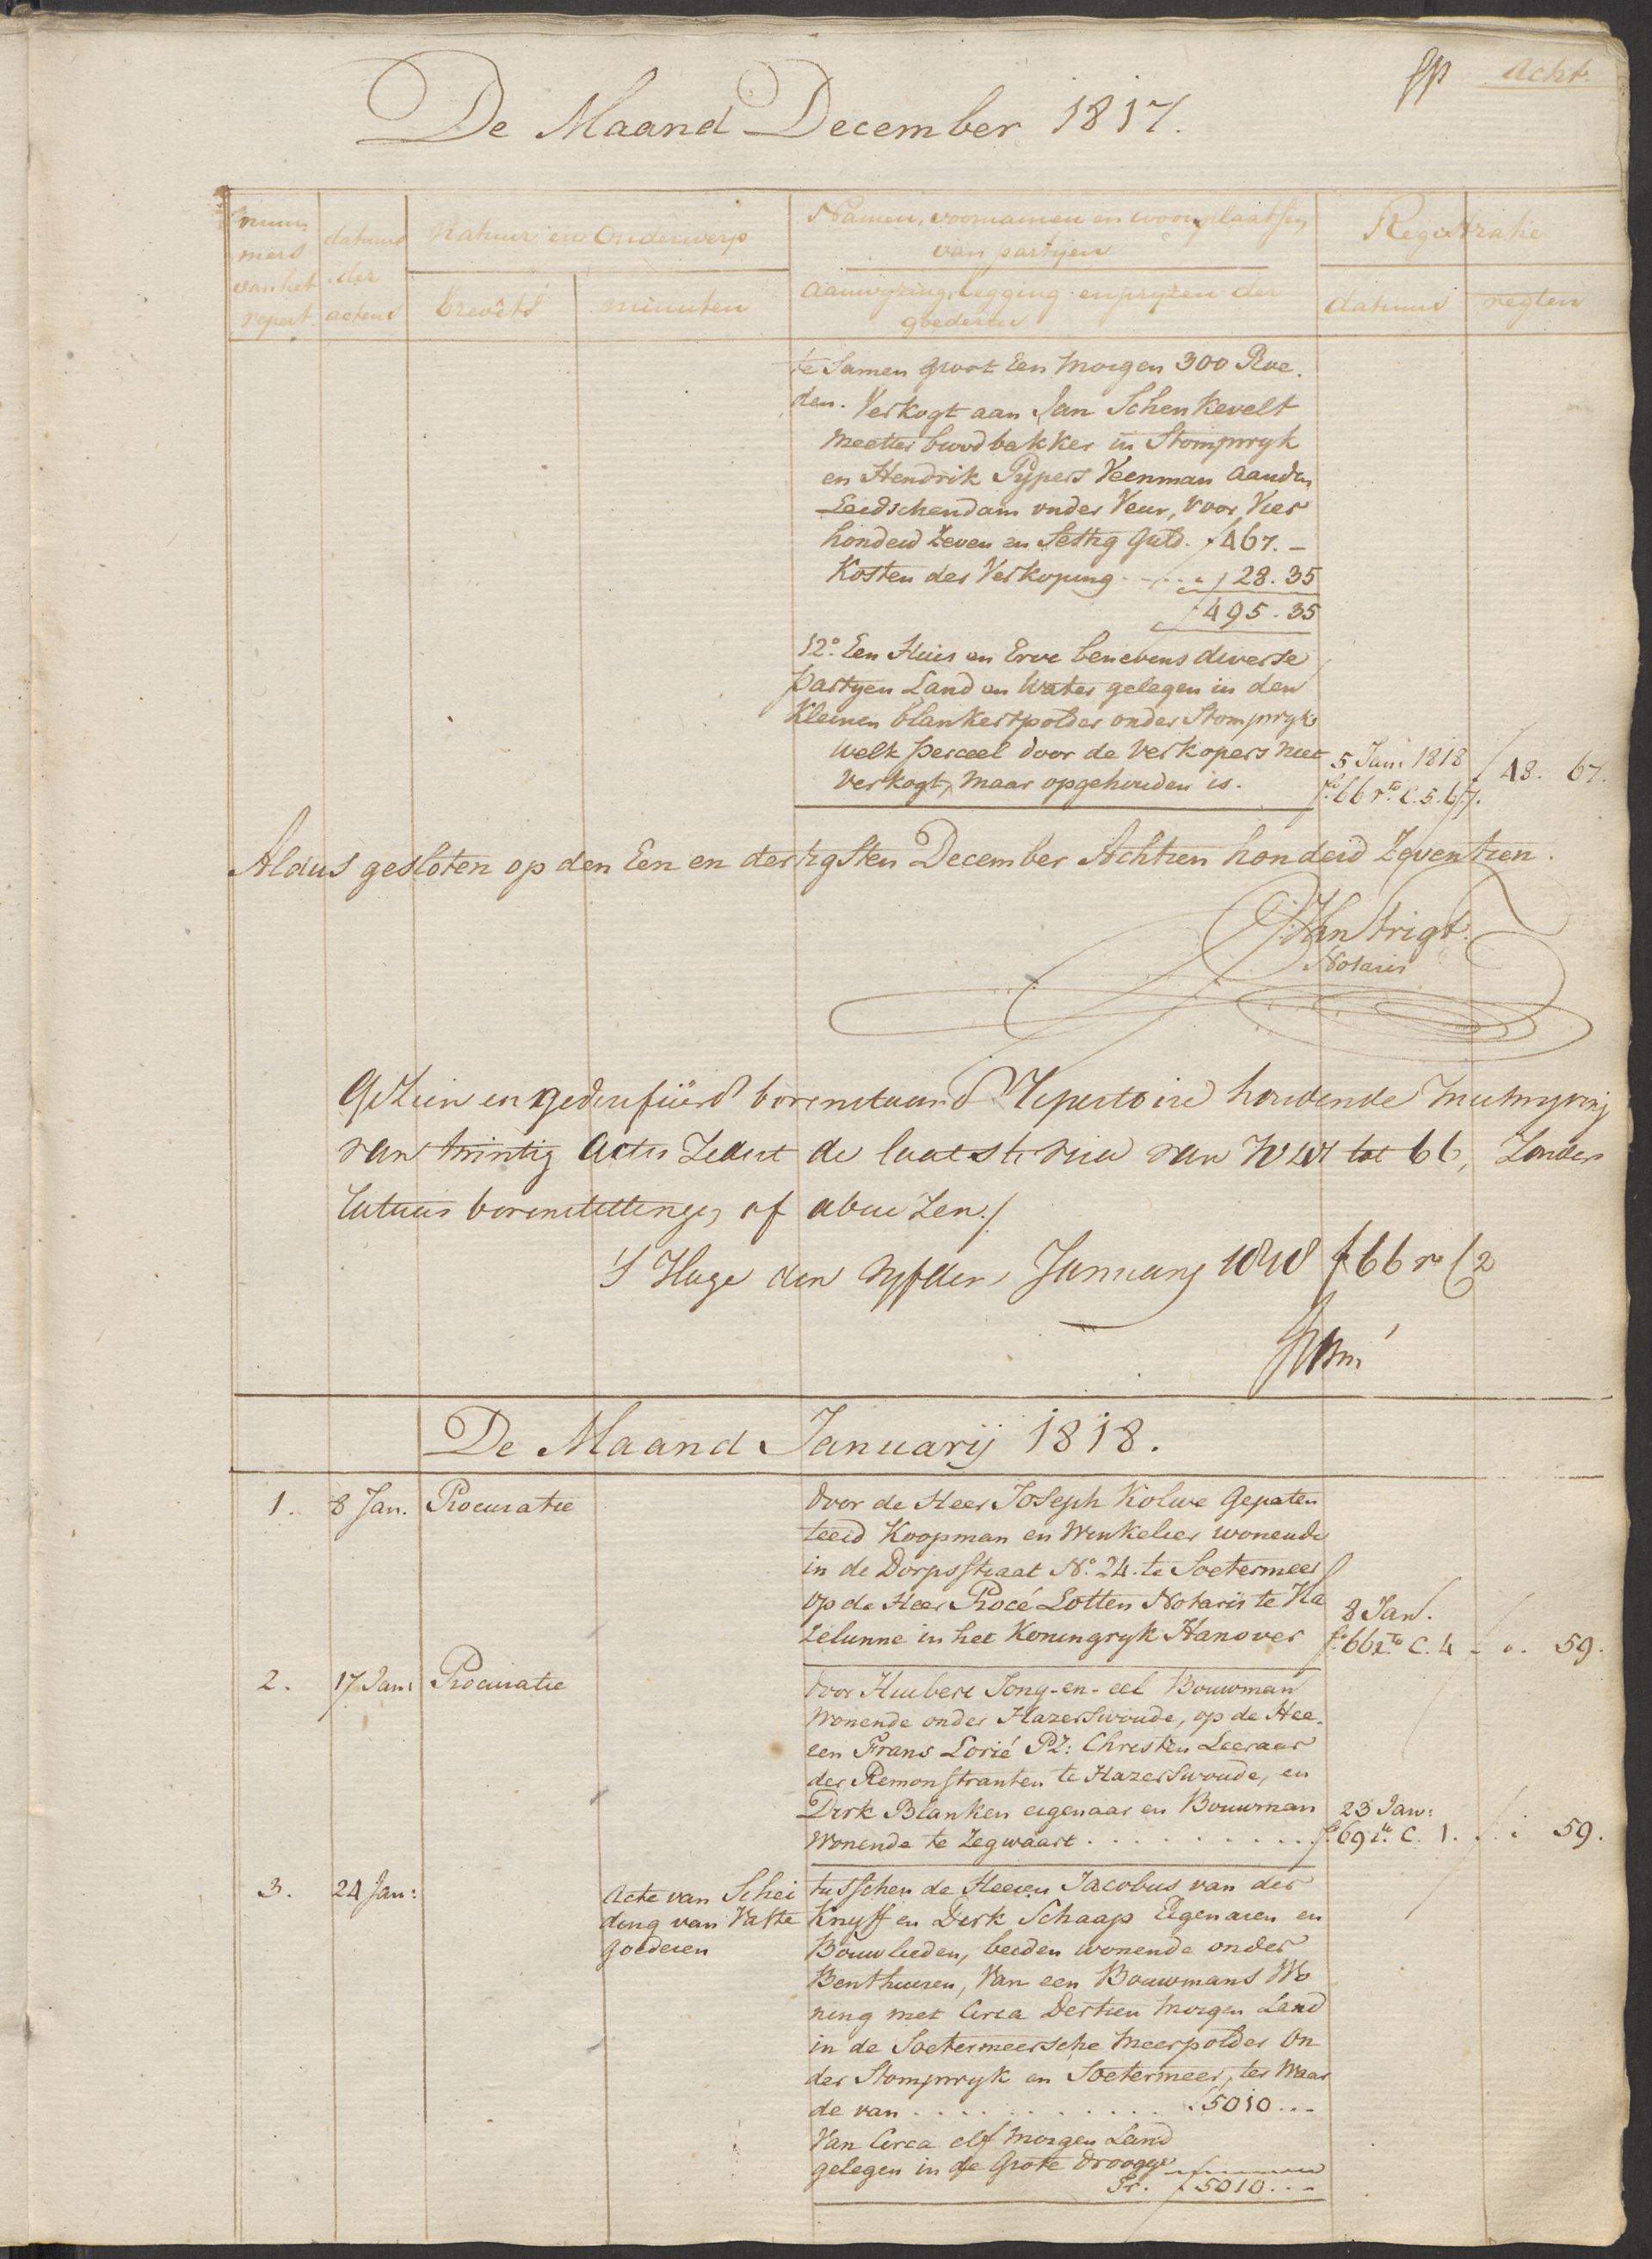 Acht.
De Maand December 1817.
num
mers
van het
repert.
datums
der
actens
Natuur en Onderwerp
brevêts
minuten
Namen, voornamen en woonplaatsen
van partijen
aanwyzing, legging en pryzen der
goederen
Registratie
datums
regten
te Samen groot Een Morgen 300 Roe.
den. Verkogt aan Jan Schenkevelt
Meester broodbakker in Stompwyk
en Hendrik Pypers Veenman aanden
Leidschendam onder Veur, voor Vier
honderd Zeven en Sestig Guld. f 467. -
Kosten der Verkoping . . . . " 28. 35
f 495. 35
12o. Een Huis en Erve benevens diverse
partyen Land en Water gelegen in den
Kleinen blankertpolder onder Stompwyk
welk perceel door de Verkopers niet
Verkogt, maar opgehouden is.
5 Jan: 1818
fo. 66 ro. C. 5. 6. 7.
f 48. 67.
Aldus gesloten op den Een en dertigsten December Achtien honderd Zeventien.
Van Strigt.
Notaris
Gezien en geverifieerd bovenstaand Repertoire houdende Inschryving
van twintig Actes Zedert de laatste visa van tot 66, Zonder
of abuizen./
S Hage den vyfden January 1818 f 66 ro C 2
De Maand Januarij 1818.
1. 8 Jan. Procuratie
door de Heer Joseph Kolwe Gepaten
teerd Koopman en Winkelier wonende
in de Dorpsstraat No. 24. te Soetermeer
op de Heer Rocé Lotten Notaris te Ha
zelunne in het Koningryk Hanover
8 Jan.
fo. 66 ro. C. 4 - " . 59.
2. 17 Jan: Procuratie
door Huibert Jong-en-eel Bouwman
Wonende onder Hazerswoude, op de Hee-
ren Frans Lorié PZ: Christen Leeraar
der Remonstranten te Hazerswoude, en
Dirk Blanken eigenaar en Bouwman
Wonende te Zegwaart . . . . . . . . . .
23 Jan:
fo. 69 ro. C. 1. . . 59.
3. 24 Jan:
Acte van Schei
ding van Vaste
goederen
tusschen de Heeren Jacobus van der
Knyff en Dirk Schaap Eigenaren en
Bouwlieden, beiden wonende onder
Benthuizen, Van een Bouwmans Wo
ning met Circa Dertien Morgen Land
in de Soetermeersche Meerpolder On
der Stompwyk en Soetermeer, ter Waar
de van . . . . . . . . . . . 5010 . . -
Van Circa elf Morgen Land
gelegen in de Grote drooge
Tr. f 5010 . . -